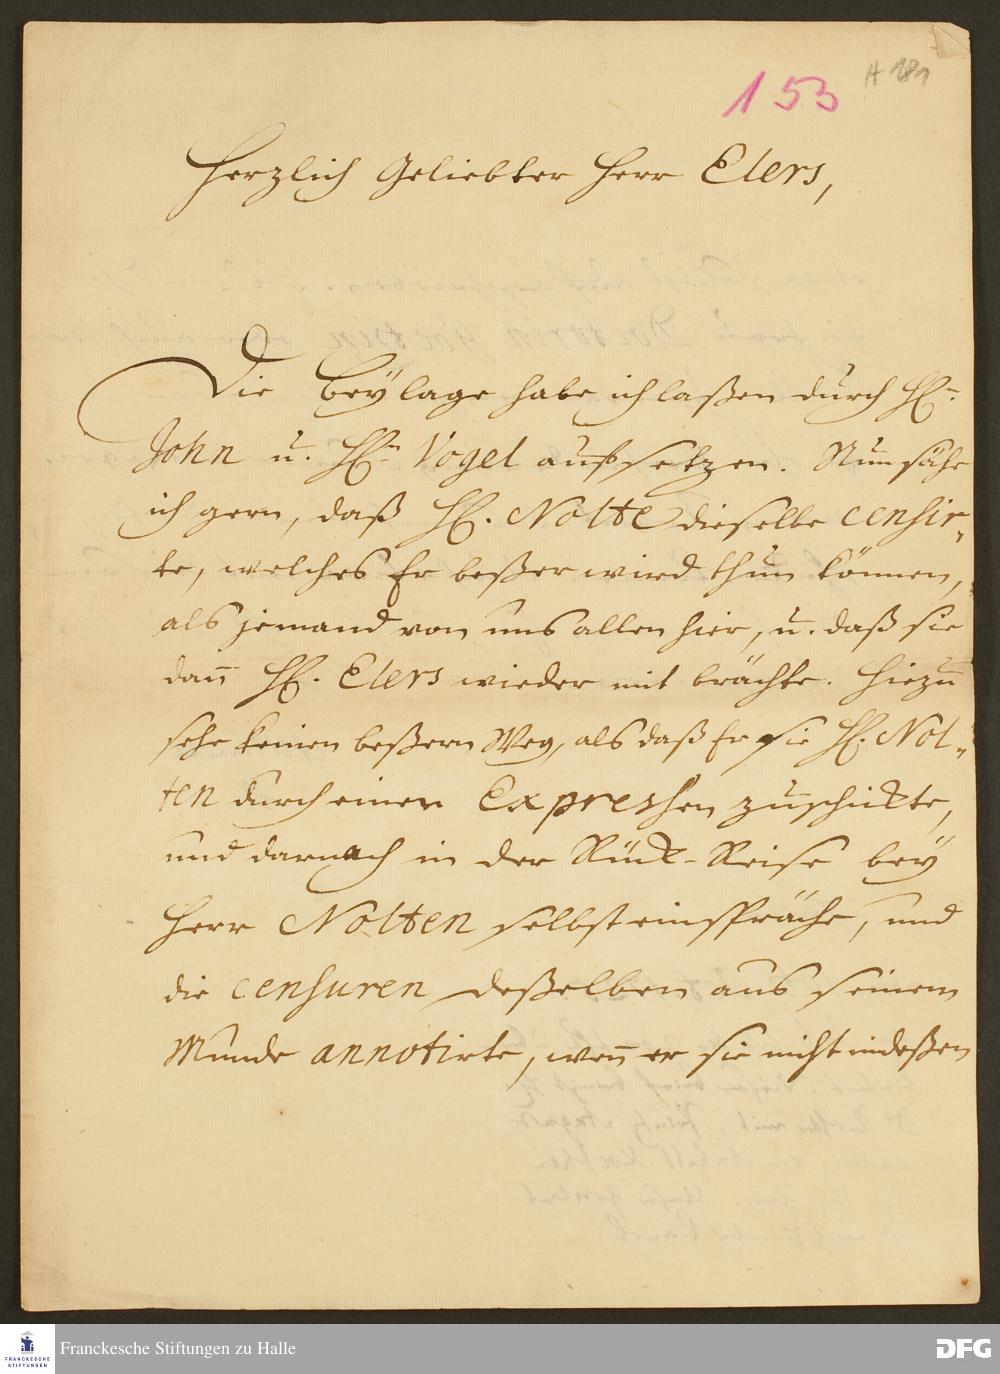 153 A 181
Herzlich Geliebter Herr Elers,
Die Beÿlage habe ich laßen durch H.
John u. H. Vogel auffsetzen. Nun sähe
ich gern, daß H. Nolte dieselbe censir-
te, welches Er beßer wird thun können,
als jemand von uns allen hier, u. daß sie
dan̄ H. Elers wieder mit brächte. Hiezu
sehe keinen beßern Weg, als daß Er sie H. Nol-
ten durch einen Expressen zuschickte,
und darnach in der Rück-Reise beÿ
Herr Nolten selbst einspräche, und
die censuren deßelben aus seinem
Munde annotirte, wen̄ er sie nicht indeßen
Franckesche Stiftungen zu Halle
FRANCKESCHE
STIFTUNGEN
DFG